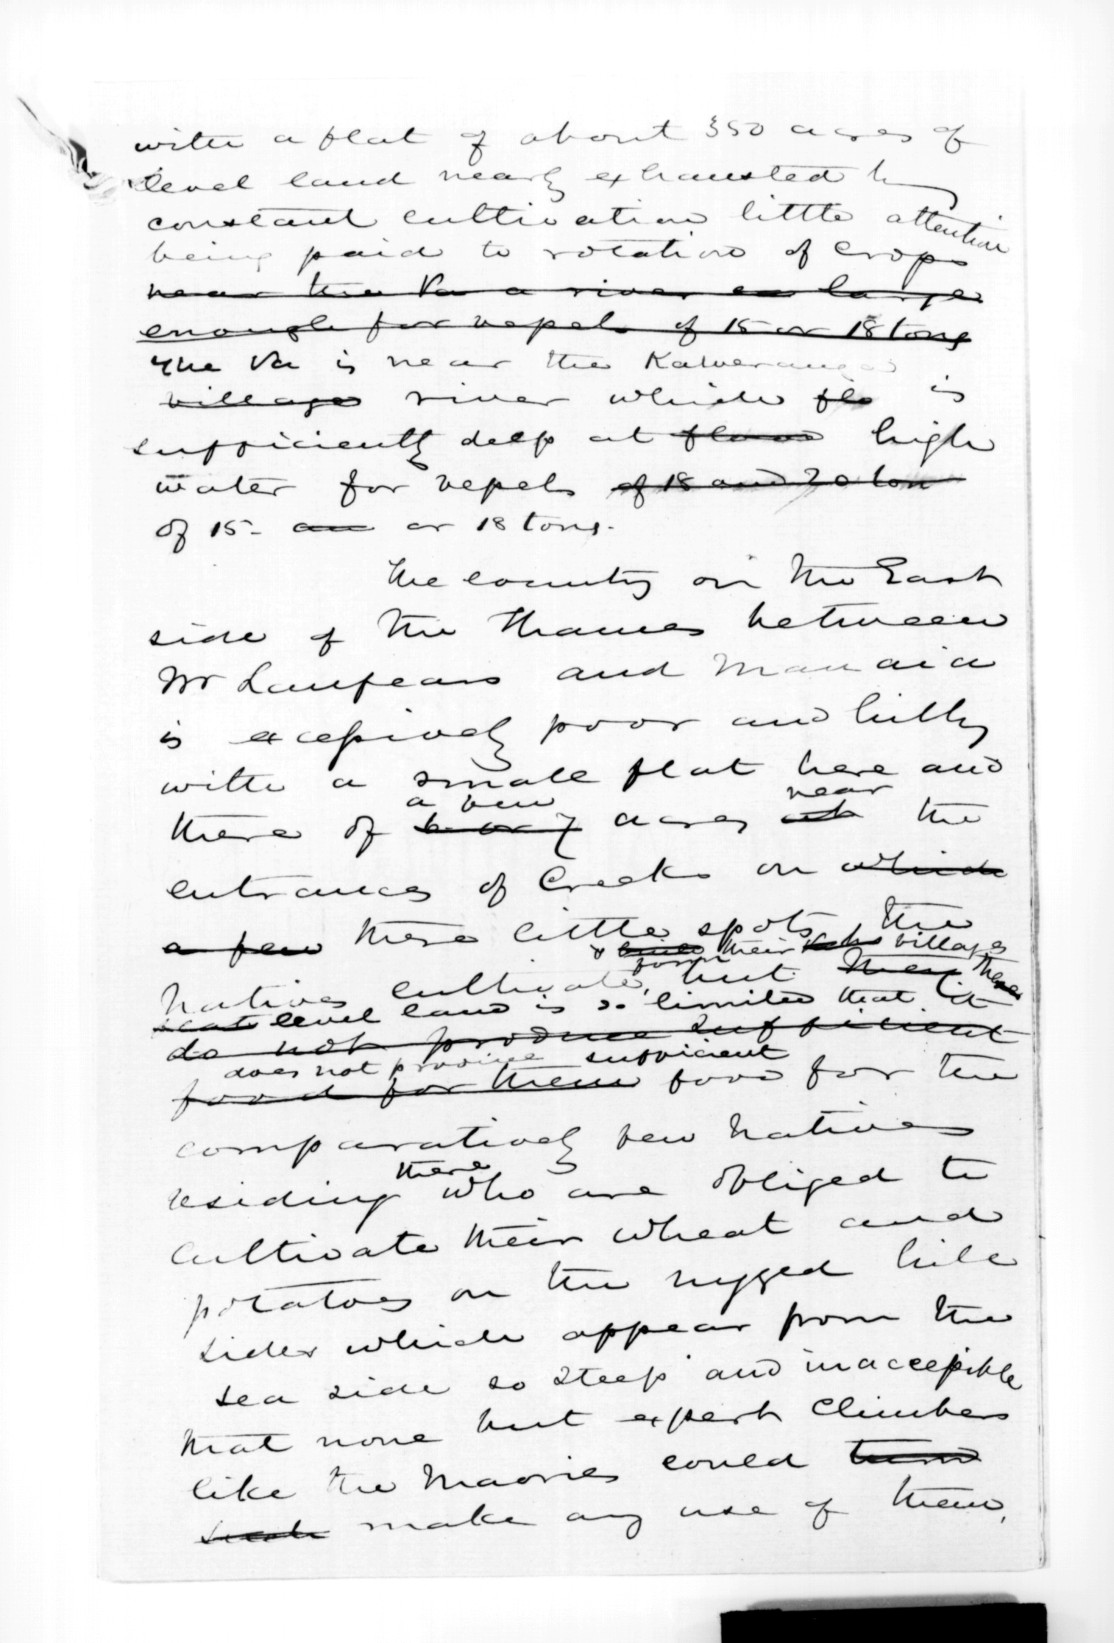 with a flat of about 350 acres of
level land nearly exhausted by
constant cultivation little attention
being paid to rotation of crops
near the Pa a river so large
enough for vessels of 15 or 18 tons
The Pa is near the Kaweranga
village river which flo is
sufficiently deep at flood high
water for vessels of 18 and 20 ton
of 15 - an or 18 tons.
The country on the East
side of the Thames between
Mr Lanfears and Manaia
is excessively poor and hilly
with a small flat here and
a few near
there of 6 or 7 acres at the
entrances of Creeks on which
a few these little spots the
& build their villages
form
Natives cultivate, but they these
level land is so limited that it
do not produce sufficient
does not provide sufficient
food for them food for the
comparatively few Natives
there
residing who are obliged to
cultivate their wheat and
potatoes on the rugged hill
sides which appear from the
sea side so steep and inaccessible
that none but expert climbers
like the Maories could
such make any use of them.